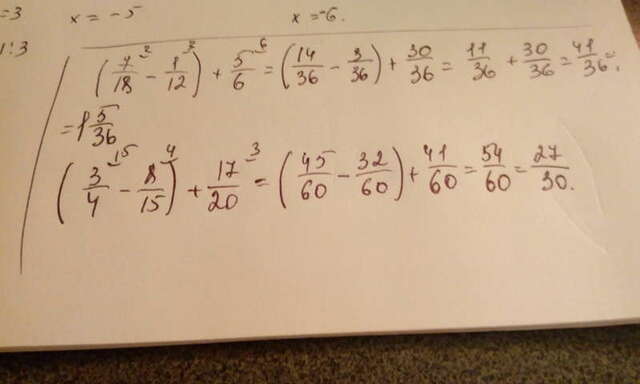 =3 x = -5 x = -6.
1:3
(7/18 ² - 1/12 ³) + 5/6 ⁶ = (14/36 - 3/36) + 30/36 = 11/36 + 30/36 = 41/36 =
= 1 5/36
(3/4 ¹⁵ - 8/15 ⁴) + 17/20 ³ = (45/60 - 32/60) + 41/60 = 54/60 = 27/30.